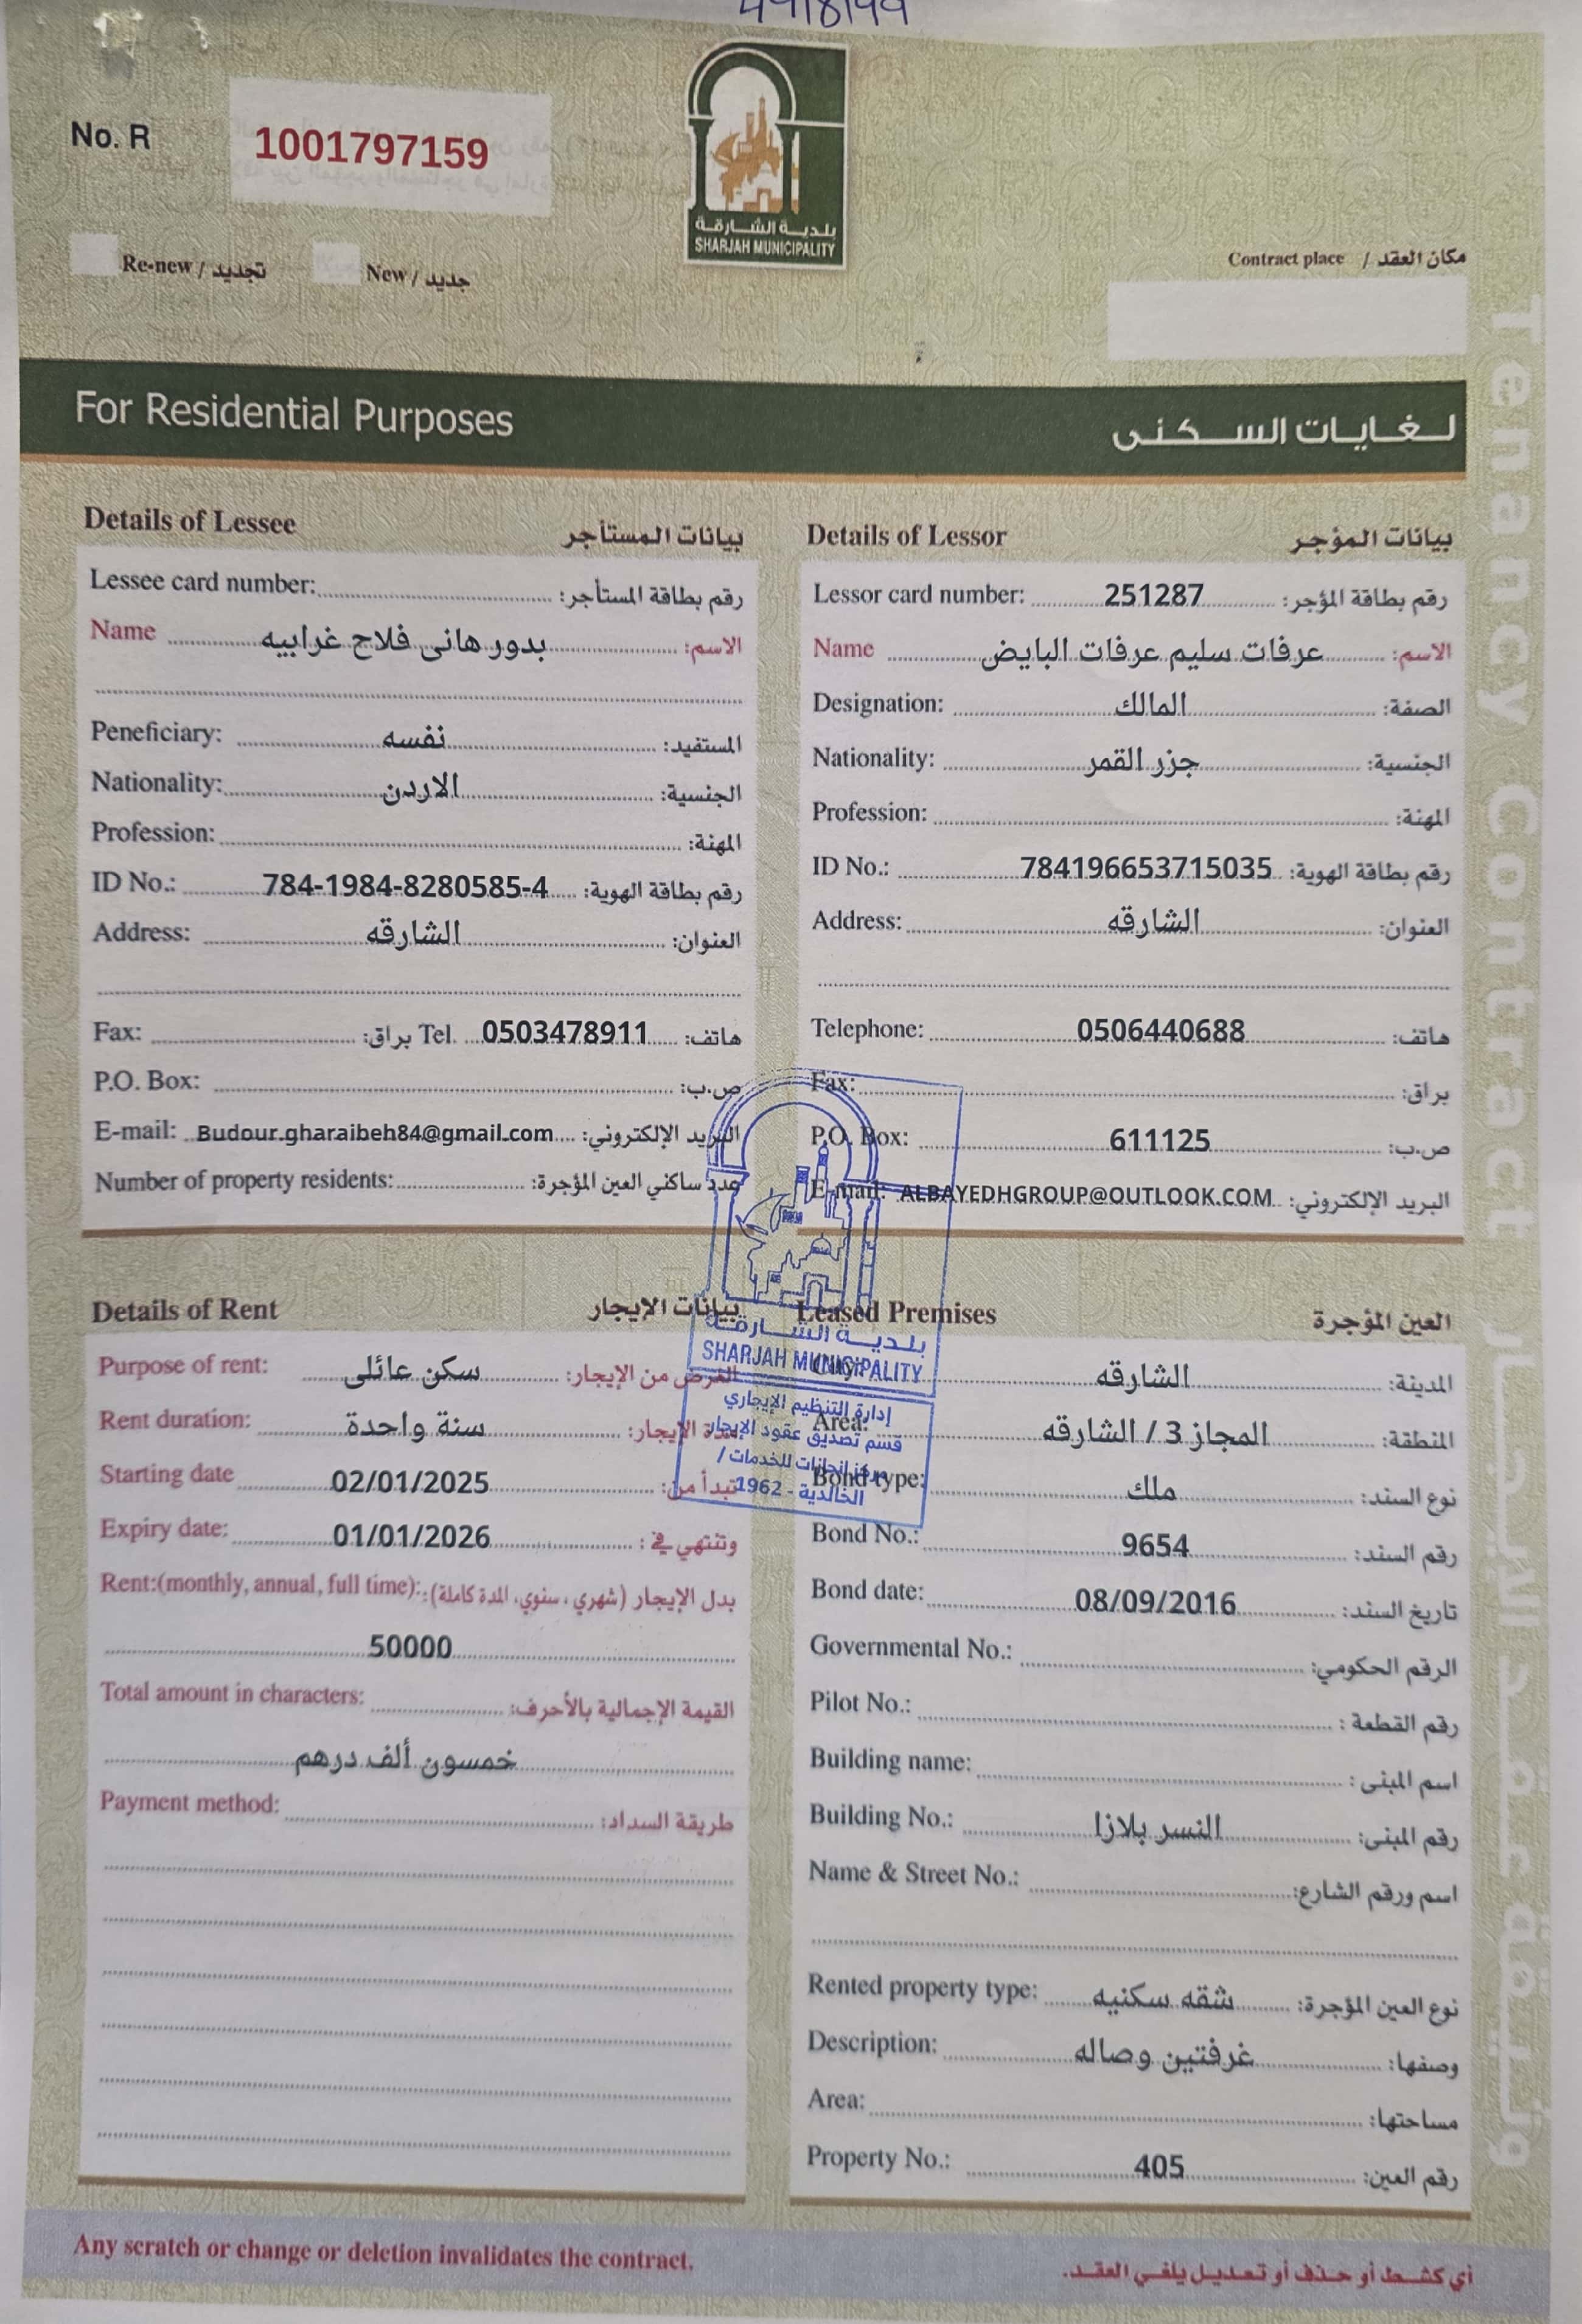 No. R 1001797159
بلدية الشارقة
SHARJAH MUNICIPALITY
Re-new / تجديد
New / جديد
Contract place / مكان العقد
For Residential Purposes
لغايات السكنى
Details of Lessee بيانات المستأجر
Lessee card number: رقم بطاقة المستأجر:
Name بدور هانى فلاح غرايبه الاسم:
Peneficiary: نفسه المستفيد:
Nationality: الاردن الجنسية:
Profession: المهنة:
ID No.: 784-1984-8280585-4 رقم بطاقة الهوية:
Address: الشارقه العنوان:
Fax: براق: Tel. 0503478911 هاتف:
P.O. Box: ص.ب:
E-mail: Budour.gharaibeh84@gmail.com البريد الإلكتروني:
Number of property residents: عدد ساكني العين المؤجرة:
Details of Lessor بيانات المؤجر
Lessor card number: 251287 رقم بطاقة المؤجر:
Name عرفات سليم عرفات البايض الاسم:
Designation: المالك الصفة:
Nationality: جزر القمر الجنسية:
Profession: المهنة:
ID No.: 784196653715035 رقم بطاقة الهوية:
Address: الشارقه العنوان:
Telephone: 0506440688 هاتف:
Fax: براق:
P.O. Box: 611125 ص.ب:
E-mail: ALBAYEDHGROUP@OUTLOOK.COM البريد الإلكتروني:
Details of Rent بيانات الإيجار
Purpose of rent: سكن عائلى الغرض من الإيجار:
Rent duration: سنة واحدة مدة الإيجار:
Starting date 02/01/2025 تبدأ من:
Expiry date: 01/01/2026 وتنتهي في :
Rent:(monthly, annual, full time): بدل الإيجار (شهري ، سنوي، المدة كاملة):
50000
Total amount in characters: القيمة الإجمالية بالأحرف:
خمسون ألف درهم
Payment method: طريقة السداد:
Leased Premises العين المؤجرة
City: الشارقه المدينة:
Area: المجاز 3 / الشارقه المنطقة:
Bond type: ملك نوع السند:
Bond No.: 9654 رقم السند:
Bond date: 08/09/2016 تاريخ السند:
Governmental No.: الرقم الحكومي:
Pilot No.: رقم القطعة :
Building name: اسم المبنى :
Building No.: النسر بلازا رقم المبنى:
Name & Street No.: اسم ورقم الشارع:
Rented property type: شقه سكنيه نوع العين المؤجرة:
Description: غرفتين وصاله وصفها:
Area: مساحتها:
Property No.: 405 رقم العين:
بلدية الشارقة
SHARJAH MUNICIPALITY
إدارة التنظيم الإيجاري
قسم تصديق عقود الإيجار
مركز إنجازات للخدمات /
الخالدية - 1962
Any scratch or change or deletion invalidates the contract.
أي كشط أو حذف أو تعديل يلغي العقد.
Tenancy Contract